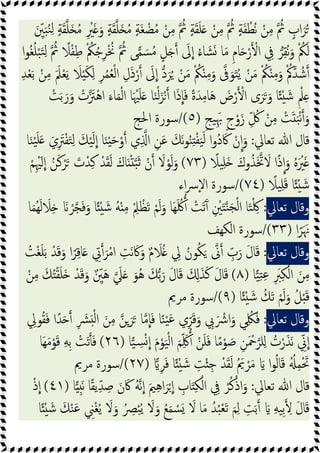 تُرَابٍ ثُمَّ مِنْ نُطْفَةٍ ثُمَّ مِنْ عَلَقَةٍ ثُمَّ مِنْ مُضْغَةٍ مُخَلَّقَةٍ وَغَيْرِ مُخَلَّقَةٍ لِنُبَيِّنَ
لَكُمْ وَنُقِرُّ فِي الْأَرْحَامِ مَا نَشَاءُ إِلَى أَجَلٍ مُسَمًّى ثُمَّ نُخْرِجُكُمْ طِفْلًا ثُمَّ لِتَبْلُغُوا
أَشُدَّكُمْ وَمِنْكُمْ مَنْ يُتَوَفَّى وَمِنْكُمْ مَنْ يُرَدُّ إِلَى أَرْذَلِ الْعُمُرِ لِكَيْلَا يَعْلَمَ مِنْ بَعْدِ
عِلْمٍ شَيْئًا وَتَرَى الْأَرْضَ هَامِدَةً فَإِذَا أَنْزَلْنَا عَلَيْهَا الْمَاءَ اهْتَزَّتْ وَرَبَتْ
وَأَنْبَتَتْ مِنْ كُلِّ زَوْجٍ بَهِيجٍ (٥)/سورة الحج
قال الله تعالى: وَإِنْ كَادُوا لَيَفْتِنُونَكَ عَنِ الَّذِي أَوْحَيْنَا إِلَيْكَ لِتَفْتَرِيَ عَلَيْنَا
غَيْرَهُ وَإِذًا لَاتَّخَذُوكَ خَلِيلًا (٧٣) وَلَوْلَا أَنْ ثَبَّتْنَاكَ لَقَدْ كِدْتَ تَرْكَنُ إِلَيْهِمْ
شَيْئًا قَلِيلًا (٧٤)/سورة الإسراء
وقال تعالى: كِلْتَا الْجَنَّتَيْنِ آتَتْ أُكُلَهَا وَلَمْ تَظْلِمْ مِنْهُ شَيْئًا وَفَجَّرْنَا خِلَالَهُمَا
نَهَرًا (٣٣)/سورة الكهف
وقال تعالى: قَالَ رَبِّ أَنَّى يَكُونُ لِي غُلَامٌ وَكَانَتِ امْرَأَتِي عَاقِرًا وَقَدْ بَلَغْتُ
مِنَ الْكِبَرِ عِتِيًّا (٨) قَالَ كَذَلِكَ قَالَ رَبُّكَ هُوَ عَلَيَّ هَيِّنٌ وَقَدْ خَلَقْتُكَ مِنْ
قَبْلُ وَلَمْ تَكُ شَيْئًا (٩)/سورة مريم
وقال تعالى: فَكُلِي وَاشْرَبِي وَقَرِّي عَيْنًا فَإِمَّا تَرَيِنَّ مِنَ الْبَشَرِ أَحَدًا فَقُولِي
إِنِّي نَذَرْتُ لِلرَّحْمَنِ صَوْمًا فَلَنْ أُكَلِّمَ الْيَوْمَ إِنْسِيًّا (٢٦) فَأَتَتْ بِهِ قَوْمَهَا
تَحْمِلُهُ قَالُوا يَا مَرْيَمُ لَقَدْ جِئْتِ شَيْئًا فَرِيًّا (٢٧)/سورة مريم
قال الله تعالى: وَاذْكُرْ فِي الْكِتَابِ إِبْرَاهِيمَ إِنَّهُ كَانَ صِدِّيقًا نَبِيًّا (٤١) إِذْ
قَالَ لِأَبِيهِ يَا أَبَتِ لِمَ تَعْبُدُ مَا لَا يَسْمَعُ وَلَا يُبْصِرُ وَلَا يُغْنِي عَنْكَ شَيْئًا